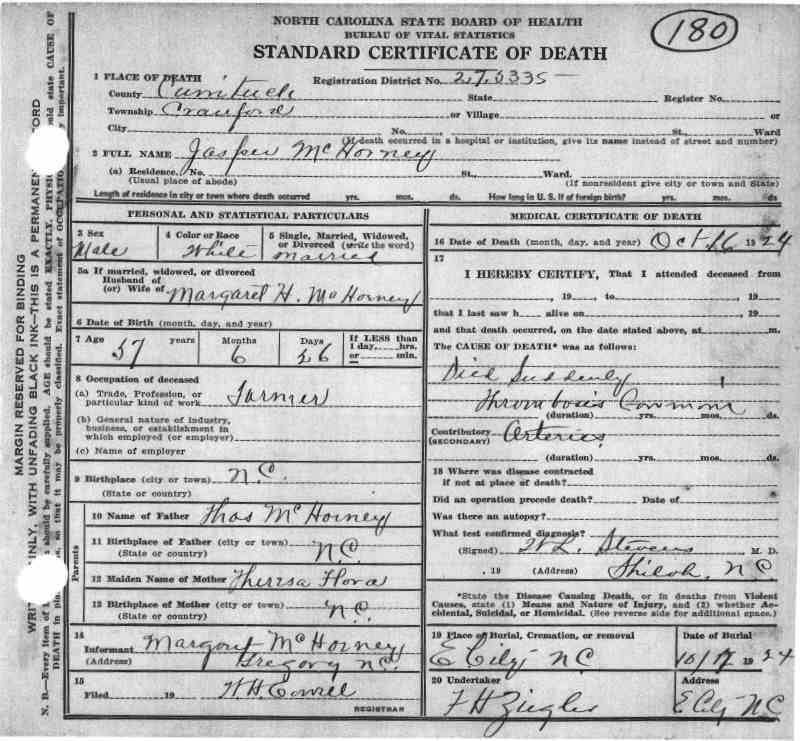 NORTH CAROLINA STATE BOARD OF HEALTH
BUREAU OF VITAL STATISTICS
STANDARD CERTIFICATE OF DEATH
180
1 PLACE OF DEATH
Registration District No. 275335
County Currituck State Register No.
Township Crawford or Village or
City No. St., Ward
(If death occurred in a hospital or institution, give its name instead of street and number)
2 FULL NAME Jasper McHorney
(a) Residence. No. St., Ward.
(Usual place of abode) (If nonresident give city or town and State)
Length of residence in city or town where death occurred yrs. mos. ds. How long in U. S. if of foreign birth? yrs. mos. ds
PERSONAL AND STATISTICAL PARTICULARS
3 Sex Male
4 Color or Race White
5 Single, Married, Widowed, or Divorced (write the word) Married
5a If married, widowed, or divorced
Husband of
(or) Wife of Margaret H. McHorney
6 Date of Birth (month, day, and year)
7 Age 57 years 6 Months 26 Days If LESS than 1 day, hrs. or min.
8 Occupation of deceased
(a) Trade, Profession, or particular kind of work Farmer
(b) General nature of industry, business, or establishment in which employed (or employer)
(c) Name of employer
9 Birthplace (city or town) N.C.
(State or country)
Parents
10 Name of Father Thos McHorney
11 Birthplace of Father (city or town)
(State or country) N.C.
12 Maiden Name of Mother Theresa Flora
13 Birthplace of Mother (city or town)
(State or country) N.C.
14
Informant Margout McHorney
(Address) Gregory NC.
15
Filed 19 W.H. Cowell
REGISTRAR
MEDICAL CERTIFICATE OF DEATH
16 Date of Death (month, day, and year) Oct 16 1924
17
I HEREBY CERTIFY, That I attended deceased from
, 19 , to , 19
that I last saw h alive on , 19
and that death occurred, on the date stated above, at m.
The CAUSE OF DEATH* was as follows:
Died Suddenly
Thrombosis
(duration) yrs. mos. ds.
Contributory Arteries
(SECONDARY)
(duration) yrs. mos. ds.
18 Where was disease contracted
if not at place of death?
Did an operation precede death? Date of
Was there an autopsy?
What test confirmed diagnosis?
(Signed) W.L. Stevens M. D.
, 19 (Address) Shiloh, N.C.
*State the Disease Causing Death, or in deaths from Violent
Causes, state (1) Means and Nature of Injury, and (2) whether Ac-
cidental, Suicidal, or Homicidal. (See reverse side for additional space.)
19 Place of Burial, Cremation, or removal
E City NC
Date of Burial
10/17 1924
20 Undertaker
F H Ziegler
Address
E City NC
MARGIN RESERVED FOR BINDING
INLY, WITH UNFADING BLACK INK—THIS IS A PERMANEN ORD
N. B.—Every item of should be carefully supplied. AGE should be stated EXACTLY. PHYSI uld state CAUSE OF
DEATH in pla so that it may be properly classified. Exact statement of OCCUPATIO important.